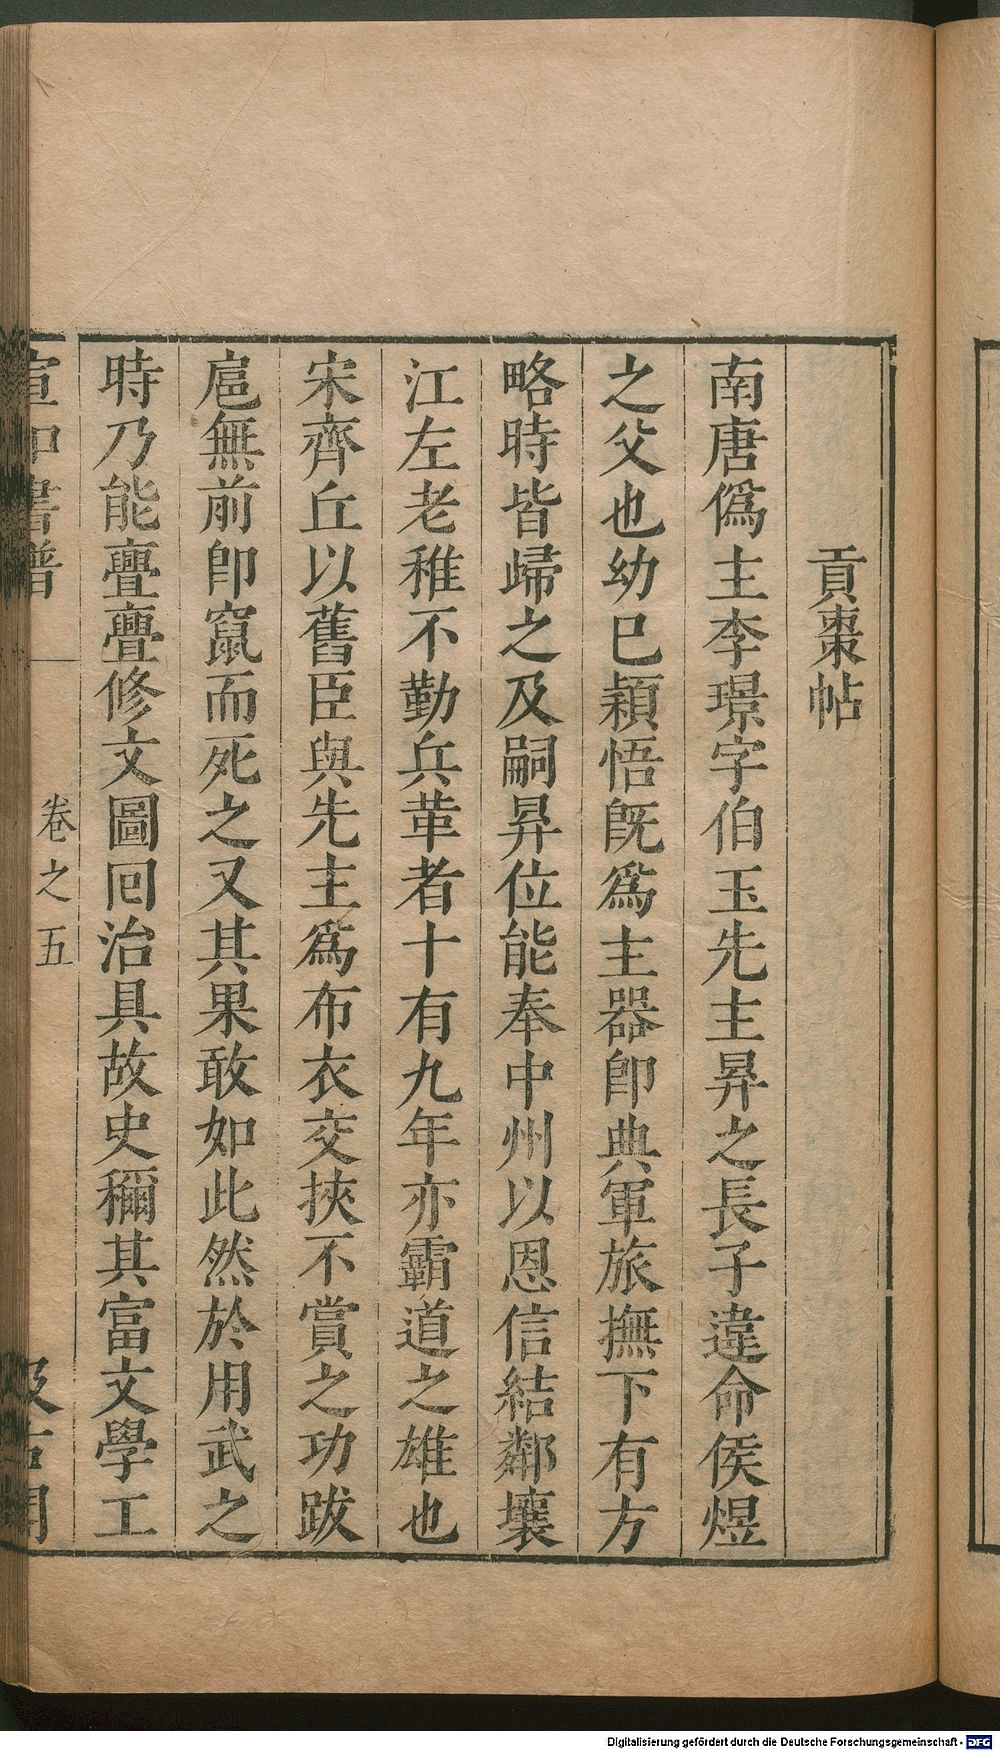 貢棗帖
南唐僞主李璟字伯玉先主昇之長子違命侯煜
之父也幼已穎悟既爲主器卽典軍旅撫下有方
略時皆歸之及嗣昇位能奉中州以恩信結鄰壤
江左老稚不勤兵革者十有九年亦霸道之雄也
宋齊丘以舊臣與先主爲布衣交挾不賞之功跋
扈無前卽竄而死之又其果敢如此然於用武之
時乃能亹亹修文圖囘治具故史稱其富文學工
宣和書譜
卷之五
汲古閣
Digitalisierung gefördert durch die Deutsche Forschungsgemeinschaft - DFG